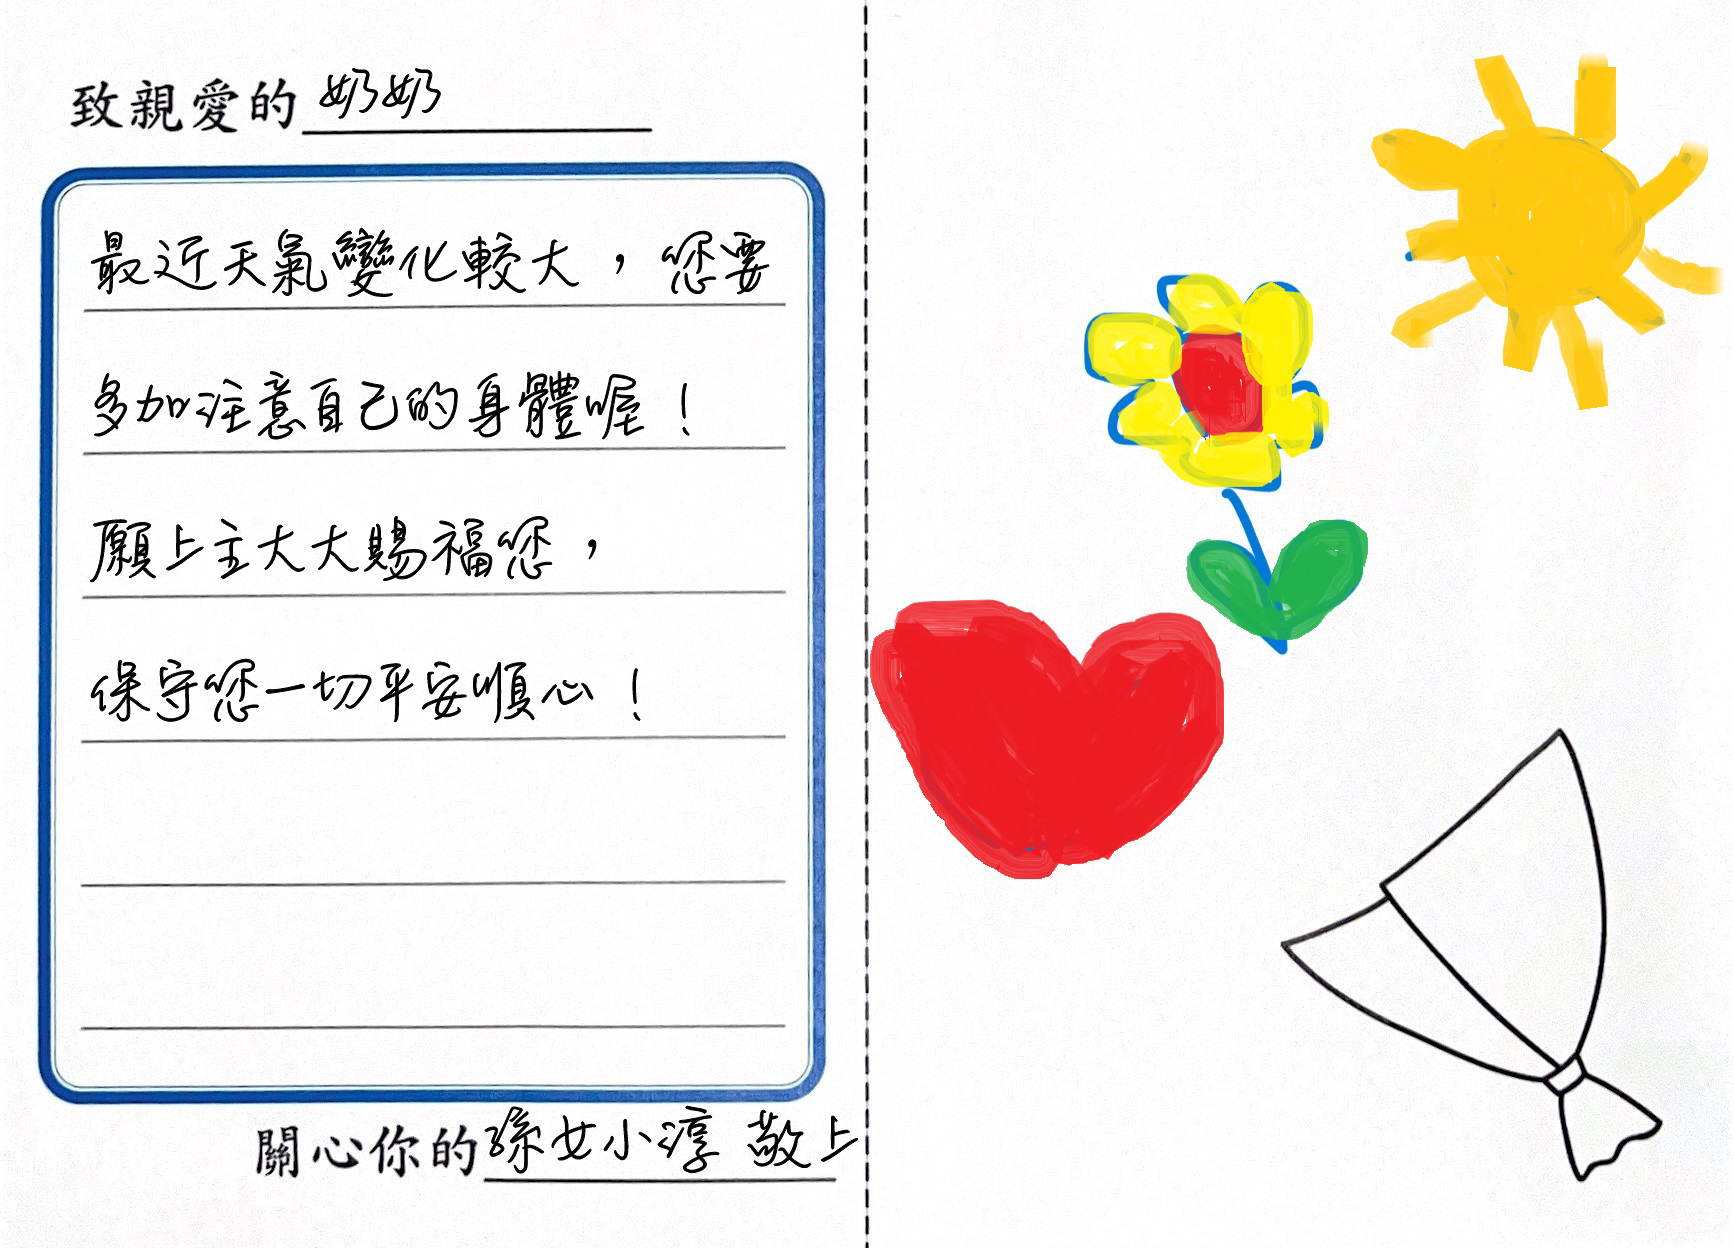 致親愛的 奶奶
最近天氣變化較大，您要
多加注意自己的身體喔！
願上主大大賜福您，
保守您一切平安順心！
關心你的孫女小淳 敬上